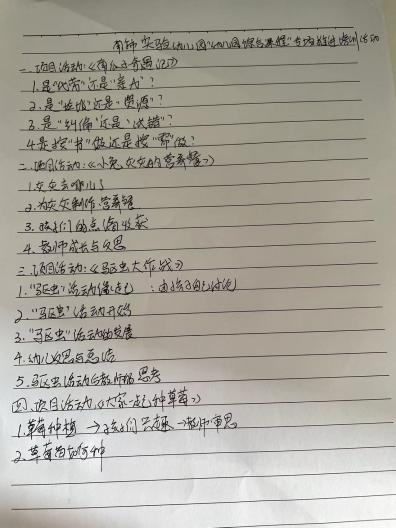 南师实验幼儿园"幼儿园综合课程"专项推进培训活动
一、项目活动:《南瓜子奇遇记》
1.是"代劳"还是"亲为"?
2.是"垃圾"还是"资源"?
3.是"纠偏"还是"试错"?
4.是按"书"做还是按"需"做?
二、项目活动:《小兔灰灰的营养餐》
1.灰灰去哪儿了
2.为灰灰制作营养餐
3.孩子们的点滴收获
4.教师成长与反思
三、项目活动:《驱虫大作战》
1."驱虫"活动缘起:由孩子自己讨论
2."驱虫"活动开始
3."驱虫"活动的发展
4.幼儿反思与总结
5.驱虫活动后教师的思考
四、项目活动《大家一起种草莓》
1.草莓种植→孩子们兴趣→教师审思
2.草莓如何种